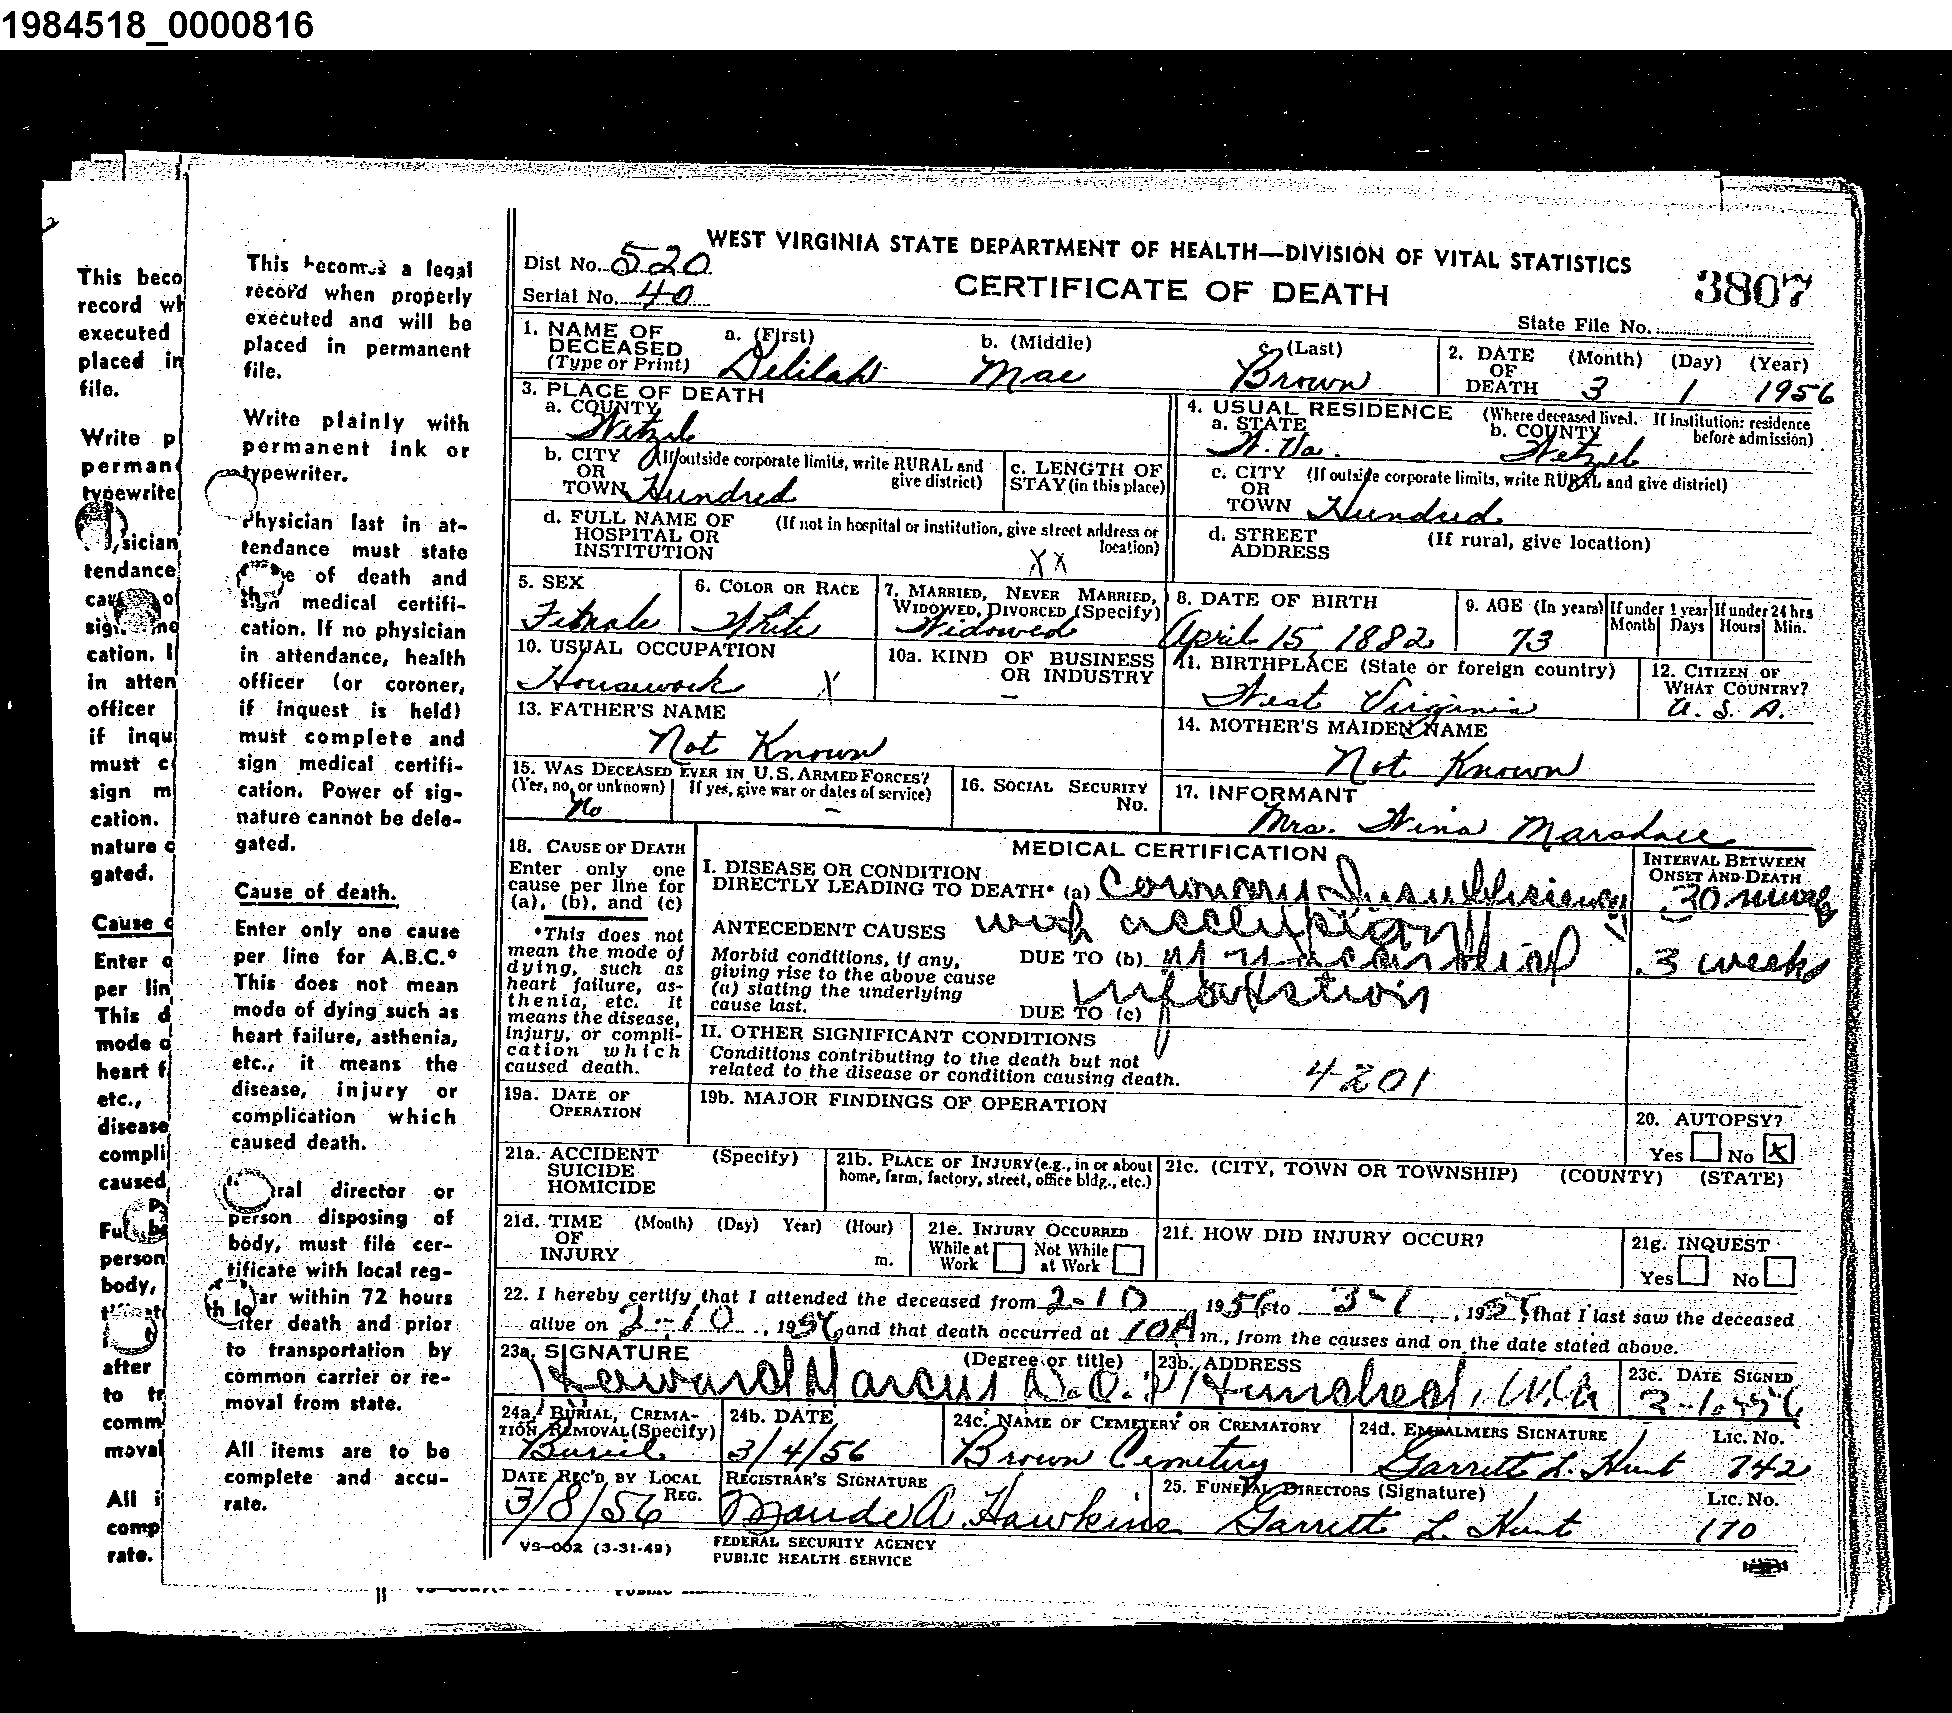 1984518_0000816
This beco
record wh
executed
placed in
file.
Write p
perman
typewrite
sician
tendance
cation. I
in atten
officer
if inqu
must c
sign m
cation.
nature o
gated.
Cause o
Enter o
per lin
This d
mode o
heart f
etc.,
disease
compli
caused
person
body,
after
to tr
comm
moval
All i
comp
rate.
This becomes a legal
record when properly
executed and will be
placed in permanent
file.
Write plainly with
permanent ink or
typewriter.
Physician last in at-
tendance must state
of death and
sign medical certifi-
cation. If no physician
in attendance, health
officer (or coroner,
if inquest is held)
must complete and
sign medical certifi-
cation. Power of sig-
nature cannot be dele-
gated.
Cause of death.
Enter only one cause
per line for A.B.C.*
This does not mean
mode of dying such as
heart failure, asthenia,
etc., it means the
disease, injury or
complication which
caused death.
ral director or
person disposing of
body, must file cer-
tificate with local reg-
ar within 72 hours
after death and prior
to transportation by
common carrier or re-
moval from state.
All items are to be
complete and accu-
rate.
WEST VIRGINIA STATE DEPARTMENT OF HEALTH—DIVISION OF VITAL STATISTICS
Dist No. 520
CERTIFICATE OF DEATH
3807
Serial No. 40
State File No.
1. NAME OF DECEASED (Type or Print) a. (First) Delilah b. (Middle) Mae c. (Last) Brown
2. DATE OF DEATH (Month) 3 (Day) 1 (Year) 1956
3. PLACE OF DEATH
a. COUNTY Wetzel
4. USUAL RESIDENCE (Where deceased lived. If institution: residence before admission)
a. STATE W. Va. b. COUNTY Wetzel
b. CITY OR TOWN (If outside corporate limits, write RURAL and give district) Hundred
c. LENGTH OF STAY (in this place)
c. CITY OR TOWN (If outside corporate limits, write RURAL and give district) Hundred
d. FULL NAME OF HOSPITAL OR INSTITUTION (If not in hospital or institution, give street address or location) XX
d. STREET ADDRESS (If rural, give location)
5. SEX Female
6. COLOR OR RACE White
7. MARRIED, NEVER MARRIED, WIDOWED, DIVORCED (Specify) Widowed
8. DATE OF BIRTH April 15, 1882
9. AGE (In years) 73
If under 1 year Month Days
If under 24 hrs Hours Min.
10. USUAL OCCUPATION Housework X
10a. KIND OF BUSINESS OR INDUSTRY —
11. BIRTHPLACE (State or foreign country) West Virginia
12. CITIZEN OF WHAT COUNTRY? U. S. A.
13. FATHER'S NAME Not Known
14. MOTHER'S MAIDEN NAME Not Known
15. WAS DECEASED EVER IN U.S. ARMED FORCES?
(Yes, no, or unknown) No
If yes, give war or dates of service) —
16. SOCIAL SECURITY No.
17. INFORMANT
Mrs.
18. CAUSE OF DEATH
Enter only one
cause per line for
(a), (b), and (c)
*This does not
mean the mode of
dying, such as
heart failure, as-
thenia, etc. It
means the disease,
injury, or compli-
cation which
caused death.
MEDICAL CERTIFICATION
I. DISEASE OR CONDITION
DIRECTLY LEADING TO DEATH* (a) Coronary Insufficiency
with
ANTECEDENT CAUSES
Morbid conditions, if any,
giving rise to the above cause
(a) stating the underlying
cause last.
DUE TO (b) myocardial
DUE TO (c) infarction
INTERVAL BETWEEN ONSET AND DEATH
30
3 weeks
II. OTHER SIGNIFICANT CONDITIONS
Conditions contributing to the death but not
related to the disease or condition causing death.
4201
19a. DATE OF OPERATION
19b. MAJOR FINDINGS OF OPERATION
20. AUTOPSY?
Yes No X
21a. ACCIDENT SUICIDE HOMICIDE (Specify)
21b. PLACE OF INJURY (e.g., in or about home, farm, factory, street, office bldg., etc.)
21c. (CITY, TOWN OR TOWNSHIP) (COUNTY) (STATE)
21d. TIME OF INJURY (Month) (Day) Year) (Hour) m.
21e. INJURY OCCURRED
While at Work Not While at Work
21f. HOW DID INJURY OCCUR?
21g. INQUEST
Yes No
22. I hereby certify that I attended the deceased from 2-10, 1956 to 3-1, 1956, that I last saw the deceased
alive on 2-10, 1956 and that death occurred at 10A m., from the causes and on the date stated above.
23a. SIGNATURE (Degree or title) Howard Marcus D.O.
23b. ADDRESS Hundred, W. Va
23c. DATE SIGNED 3-1-1956
24a. BURIAL, CREMATION REMOVAL (Specify) Burial
24b. DATE 3/4/56
24c. NAME OF CEMETERY OR CREMATORY Brown Cemetery
24d. EMBALMERS SIGNATURE Garrett L. Hunt Lic. No. 742
DATE REC'D BY LOCAL REG. 3/8/56
REGISTRAR'S SIGNATURE Maude A. Hawkins
25. FUNERAL DIRECTORS (Signature) Garrett L. Hunt Lic. No. 170
VS—002 (3-31-49)
FEDERAL SECURITY AGENCY
PUBLIC HEALTH SERVICE